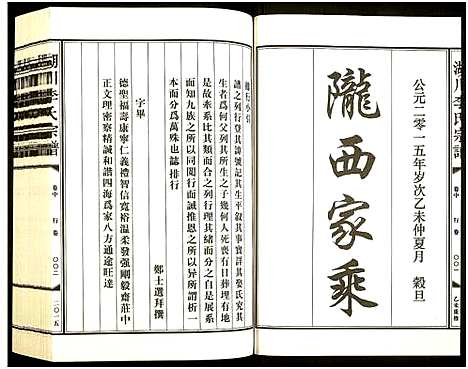 湖川李氏宗譜
公元二零一五年岁次乙未仲夏月 穀旦
隴西家乘
卷中 行卷 〇〇一
乙未重修
譜之列行登其諱號記其生平叙其婚配婁氏究其
生者為何父列其所生之子幾何人死喪有日葬埋有地
是故系所以合族而分之列行所以分族而合之是自展系
而知九族之所以同而合之列行理其緒而分之是自
本而分為萬殊也誌排行
鄭士選拜撰
字畢
德聖福壽康寧仁義禮智信寬裕溫柔發强剛毅齋莊中
正文理密察精誠和諧四海為家八方通途旺達
湖川李氏宗譜
卷中 行卷 〇〇二
二〇一五